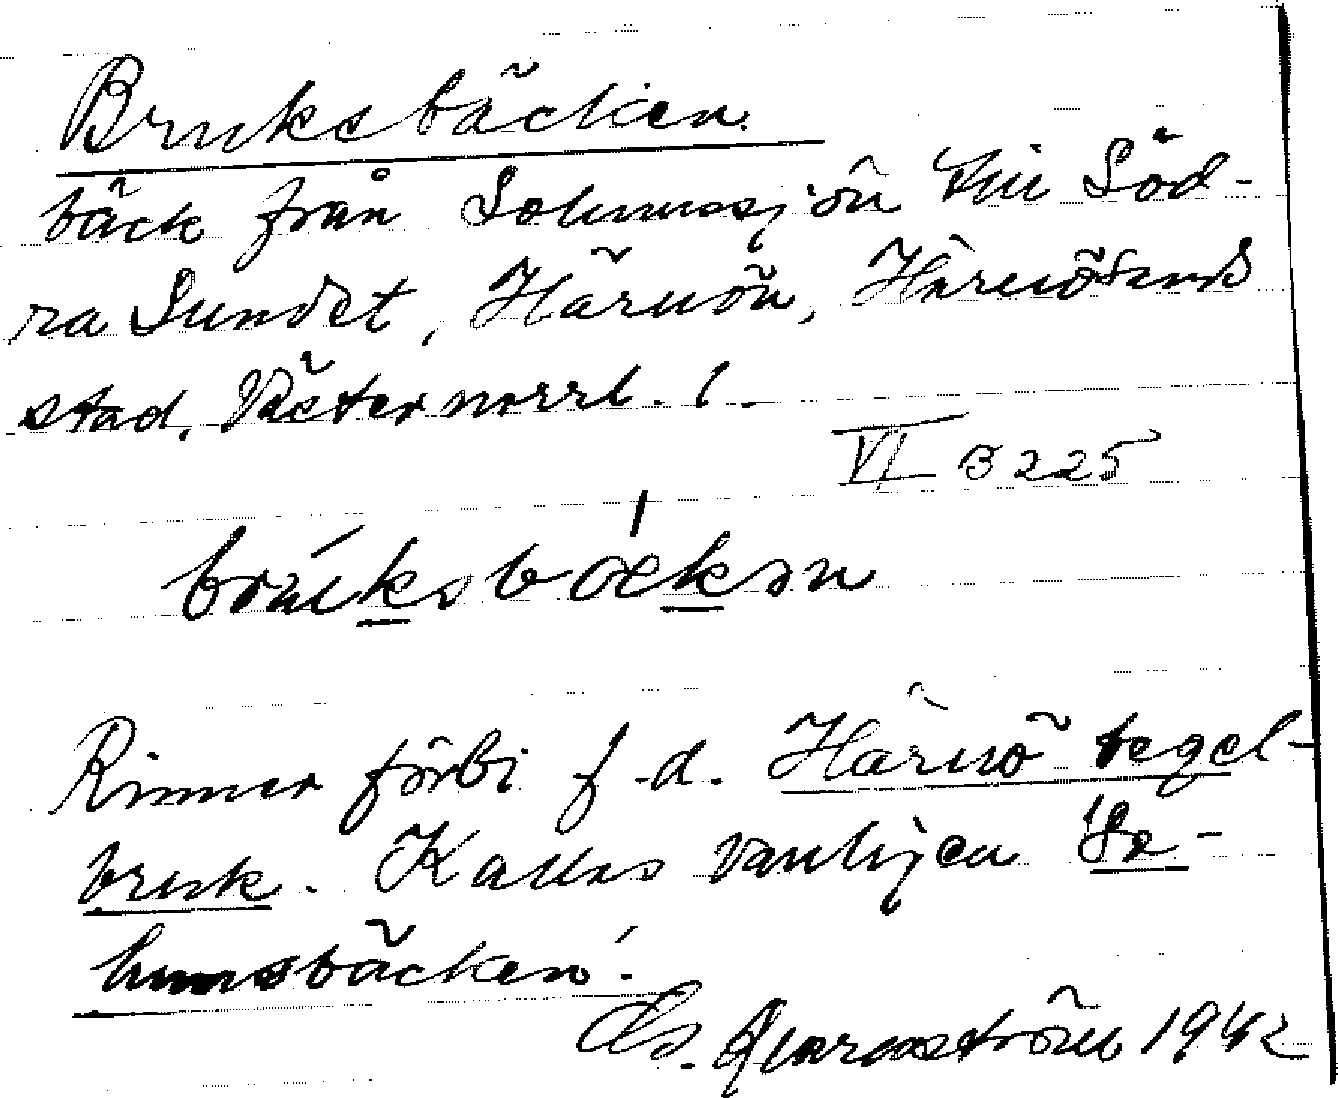 Bruksbäcken
bäck från Solumssjön till Söd-
ra Sundet, Härnön, Härnösands
stad. Västernorrl. l.
VI B 225
brúksbækən
Rinner förbi f.d. Härnö tegel-
bruk. Kallas vanligen 'So-
lumsbäcken'.
Cs. Qvarnström 1942